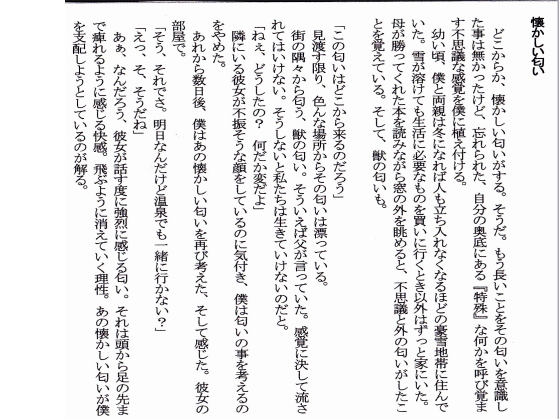 懐かしい匂い
どこからか、懐かしい匂いがする。そうだ。もう長いことをその匂いを意識し
た事は無かったけど、忘れられた、自分の奥底にある『特殊』な何かを呼び覚ま
す不思議な感覚を僕に植え付ける。
幼い頃、僕と両親は冬になれば人も立ち入れなくなるほどの豪雪地帯に住んで
いた。雪が溶けても生活に必要なものを買いに行くとき以外はずっと家にいた。
母が勝ってくれた本を読みながら窓の外を眺めると、不思議と外の匂いがしたこ
とを覚えている。そして、獣の匂いも。
「この匂いはどこから来るのだろう」
見渡す限り、色んな場所からその匂いは漂っている。
街の隅々から匂う、獣の匂い。そういえば父が言っていた。感覚に決して流さ
れてはいけない。そうしないと私たちは生きていけないのだと。
「ねぇ、どうしたの？　何だか変だよ」
隣にいる彼女が不振そうな顔をしているのに気付き、僕は匂いの事を考えるの
をやめた。
あれから数日後、僕はあの懐かしい匂いを再び考えた、そして感じた。彼女の
部屋で。
「そう、それでさ。明日なんだけど温泉でも一緒に行かない？」
「えっ、そ、そうだね」
あぁ、なんだろう、彼女が話す度に強烈に感じる匂い。それは頭から足の先ま
で痺れるように感じる快感。飛ぶように消えていく理性。あの懐かしい匂いが僕
を支配しようとしているのが解る。